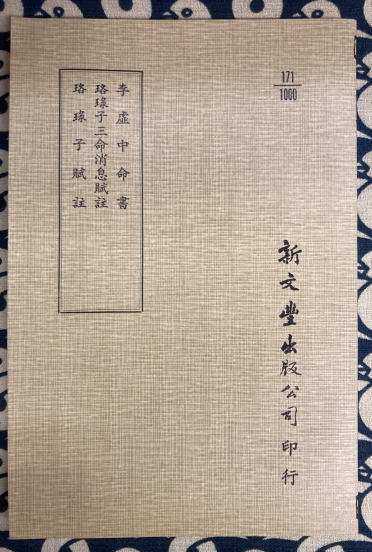 171
1000
李虛中命書
珞琭子三命消息賦註
珞琭子賦註
新文豐出版公司印行